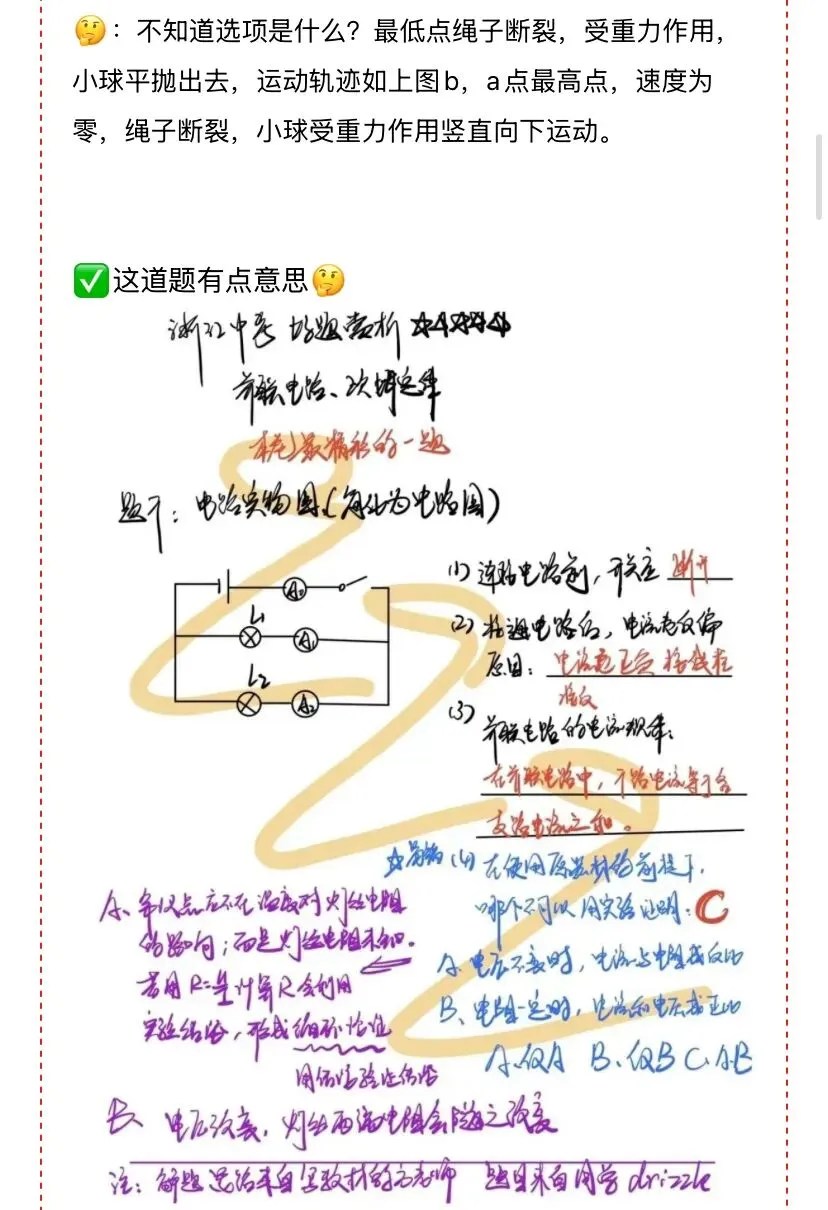 🤔：不知道选项是什么？最低点绳子断裂，受重力作用，
小球平抛出去，运动轨迹如上图b，a点最高点，速度为
零，绳子断裂，小球受重力作用竖直向下运动。
✅这道题有点意思🤔
浙江中考 好题赏析 ☆☆☆☆☆
并联电路、欧姆定律
本卷最精彩的一题
题干：电路实物图（简化为电路图）
A₀
L₁
A₁
L₂
A₂
(1) 连接电路前，开关应 断开
(2) 接通电路后，电流表反偏
原因：电流表正负接线柱
接反
(3) 并联电路的电流规律：
在并联电路中，干路电流等于各
支路电流之和。
(4) 在使用原器材的前提下，
哪个不可以用实验证明：C
A、电压不变时，电流与电阻成反比
B、电阻一定时，电流和电压成正比
A、仅A B、仅B C、A、B
A、争议点应不在温度对灯丝电阻
的影响；而是灯丝电阻未知。
若用R=计算R会利用
实验结论，形成循环论证
用结论验证结论
B、电压改变，灯丝两端电阻会随之改变
注：解题思路来自老师 题目来自同学drizzle